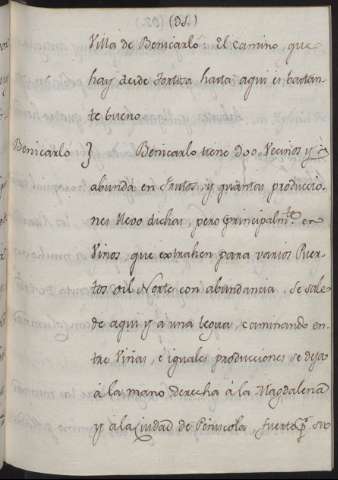 (Ds.)
Villa de Benicarló El Camino, que
hay desde Tortosa hasta aqui es bastan-
te bueno.
Benicarló } Benicarlo tiene 900 Vecinos y
abunda en frutos, y quantas produccio-
nes llevo dichas, pero principalmte. en
Vinos, que extrahen para varios Puer-
tos del Norte con abundancia. Se sale
de aqui y a una legua, caminando en-
tre Viñas, è iguales producciones se deja
à la mano derecha à la Magdalena
y à la Ciudad de Peñiscola, fuerte pr. su